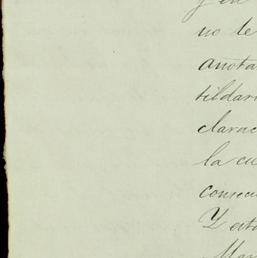 y en
no le
anota
tildar
clarac
la cu
consecu
Y esta
Mar